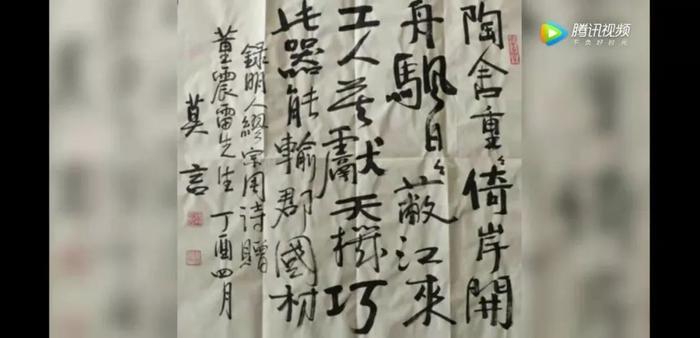 陶舍重〻倚岸開
舟颿日〻蔽江來
工人莫獻天機巧
此器能輸郡國材
録明人繆宗周詩贈
董震雷先生 丁酉四月
莫言
腾讯视频
不负好时光